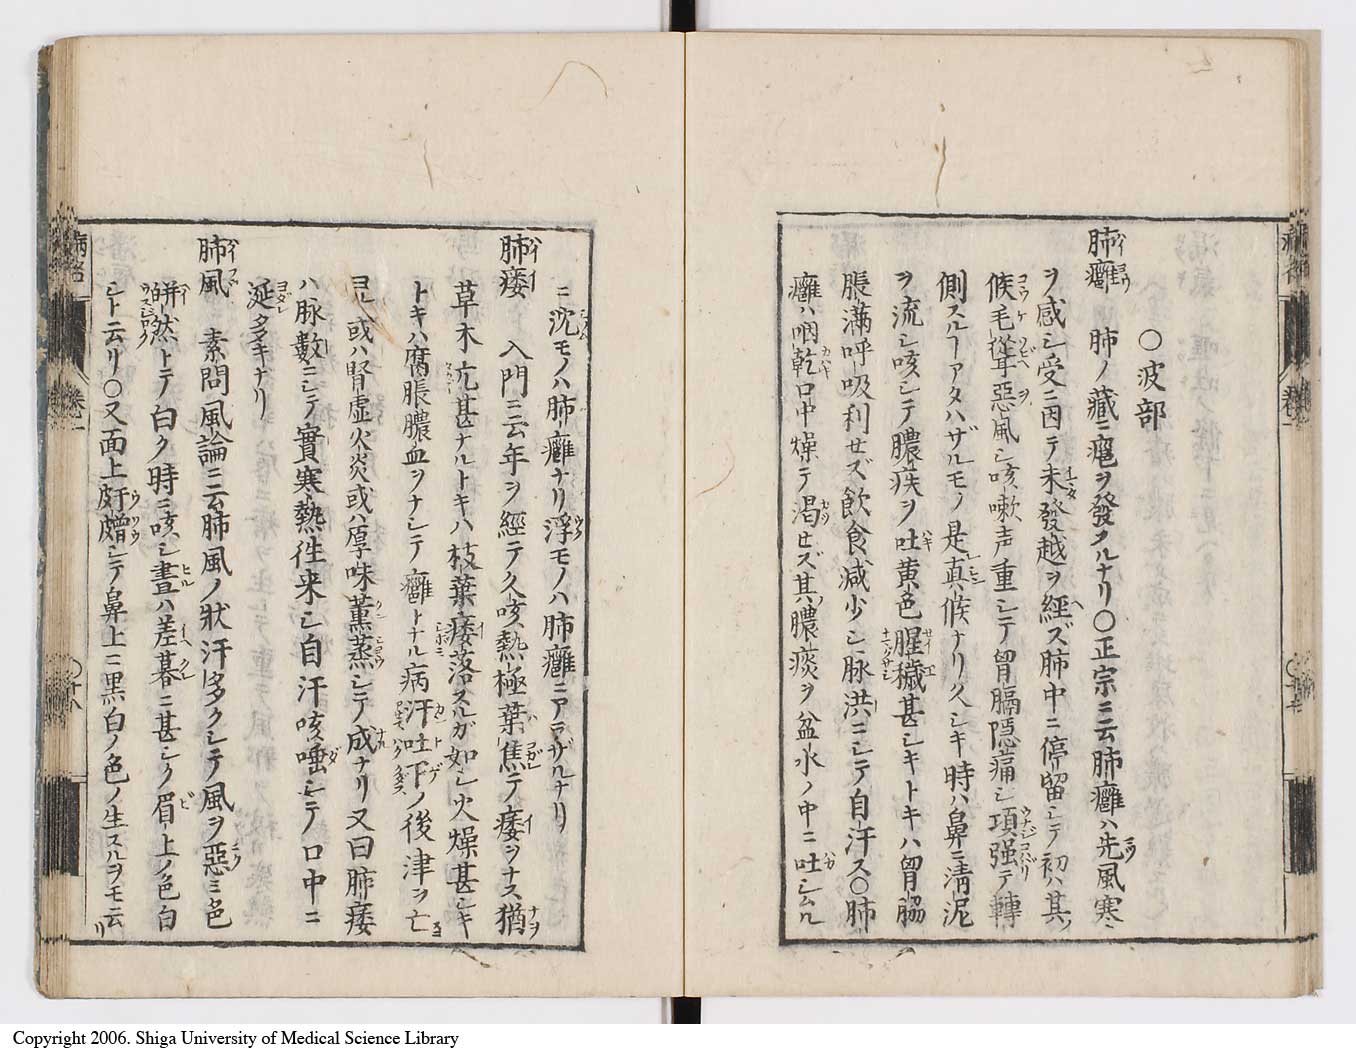 ○波部
肺癰 肺ノ藏ニ癰ヲ發スルナリ○正宗ニ云肺癰ハ先風寒
ヲ感シ受ニ因テ未發越ヲ經ズ肺中ニ停留シテ初ハ其
候毛聳惡風シ咳嗽声重シテ胷膈隠痛シ項强テ轉
側スルヿアタハザルモノ是真候ナリ久シキ時ハ鼻ニ清泥
ヲ流シ咳シテ膿痰ヲ吐黄色腥穢甚シキトキハ胷脇
脹滿呼吸利セズ飲食減少シ脉洪ニシテ自汗ス○肺
癰ハ咽乾口中燥テ渇セズ其膿痰ヲ盆水ノ中ニ吐シムル
ニ沈モノハ肺癰ナリ浮モノハ肺癰ニアラザルナリ
肺痿 入門ニ云年ヲ經テ久咳熱極葉焦テ痿ヲナス猶
草木亢甚ナルトキハ枝葉痿落スルガ如シ火燥甚シキ
トキハ腐脹膿血ヲナシテ癰トナル病汗吐下ノ後津ヲ亡
ヨル或ハ腎虚火炎或ハ厚味薫蒸シテ成ナリ又曰肺痿
ハ脉數ニシテ實寒熱徃来シ自汗咳唾シテ口中ニ
涎多キナリ
肺風 素問風論ニ云肺風ノ狀汗多クシテ風ヲ惡ミ色
皏然トテ白ク時ニ咳シ晝ハ差暮ニ甚シク眉上ノ色白
シト云リ○又面上皯䵳シテ鼻上ニ黒白ノ色ノ生スルヲモ云
Copyright 2006. Shiga University of Medical Science Library